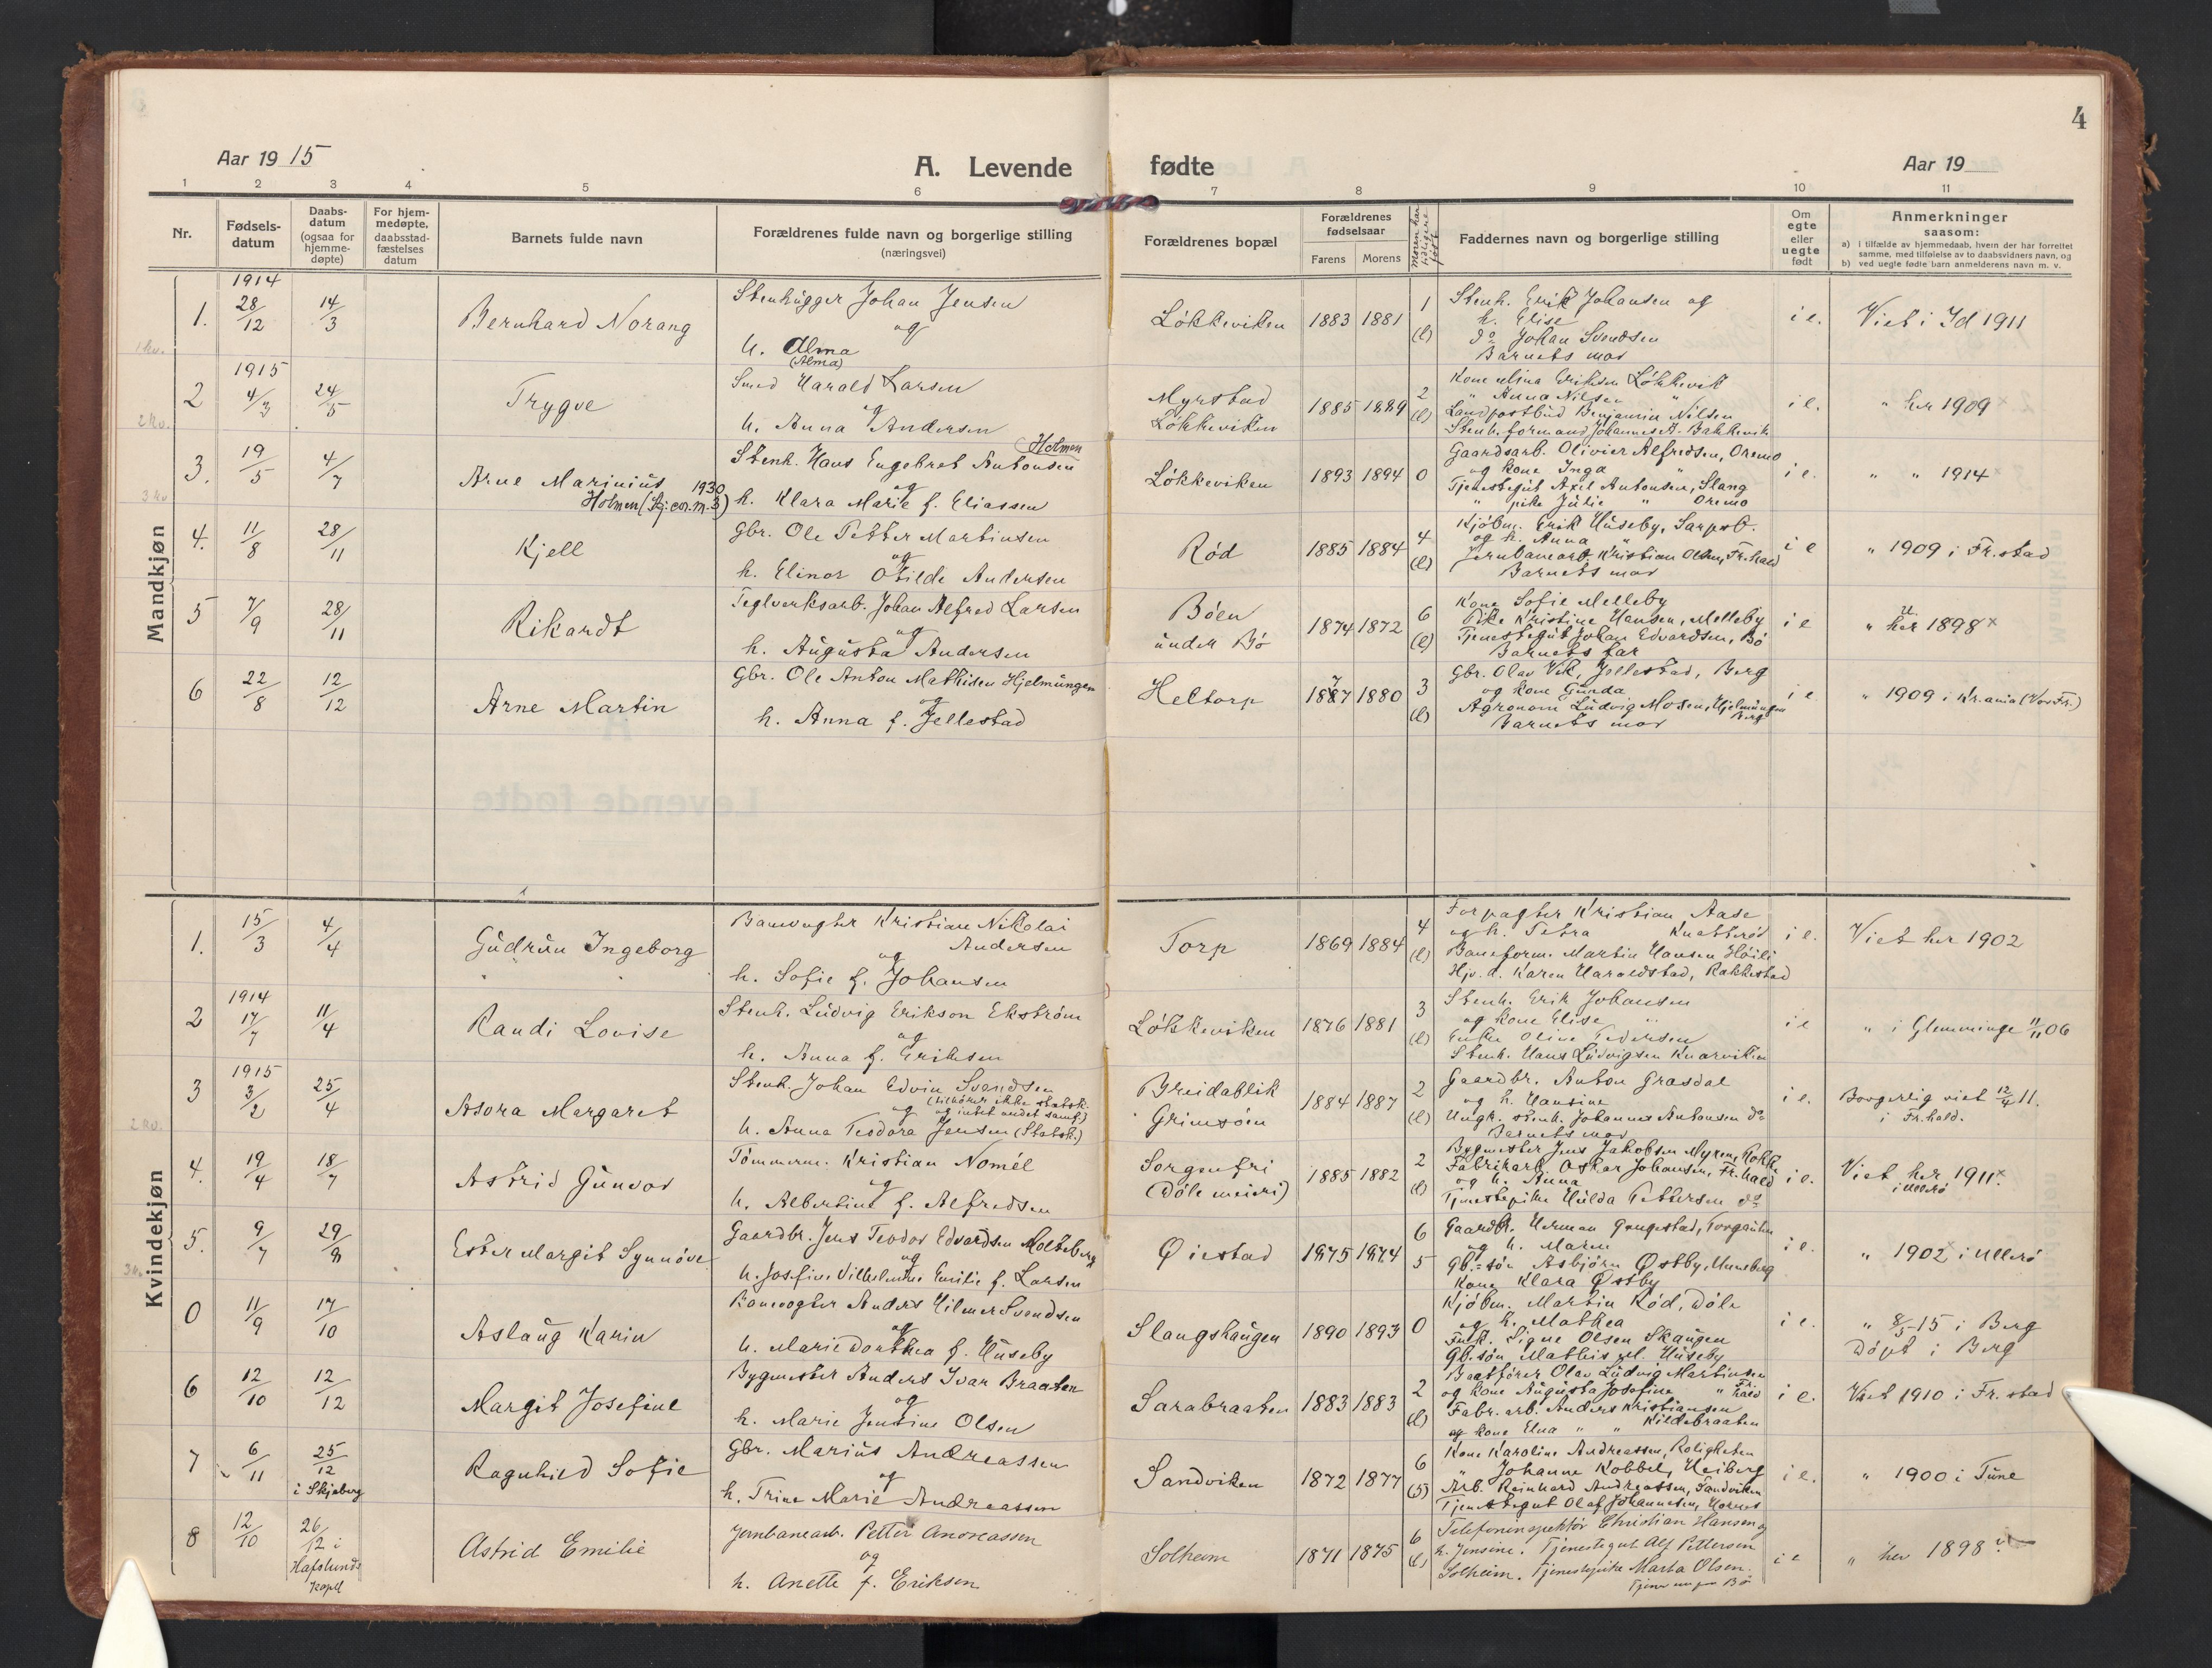 4
Aar 1915
A. Levende fødte
Aar 19
1 2 3 4 5 6 7 8 9 10 11
Nr.
Fødsels-
datum
Daabs-
datum
(ogsaa for
hjemme-
døpte)
For hjem-
medøpte,
daabsstad-
fæstelses
datum
Barnets fulde navn
Forældrenes fulde navn og borgerlige stilling
(næringsvei)
Forældrenes bopæl
Forældrenes
fødselsaar
Farens Morens
Moren har
tidligere
født
Faddernes navn og borgerlige stilling
Om
egte
eller
uegte
født
Anmerkninger
saasom:
a) i tilfælde av hjemmedaab, hvem der har forrettet
samme, med tilføielse av to daabsvidners navn, og
b) ved uegte fødte barn anmelderens navn m. v.
Mandkjøn
1914
1. 28/12 14/3 Bernhard Norang
Stenhugger Johan Jensen
og
h. Alma
(Alma)
Løkkeviken 1883 1881 1 (l)
Stenh. Erik Johansen og
h. Elise
do Johan Svendsen
Barnets mor
i e. Viet i Id 1911
1915
2 4/3 24/5 Trygve
Smed Harald Larsen
og
h. Anna Andersen
Myrstad
Løkkeviken 1885 1889 2 (l)
Kone Mina Eriksen Løkkevik
" Anna Nilsen "
Landpostbud Benjamin Nilsen
Stenh. formand Johannes A. Bakkevik
i e. " her 1909 x
3. 19/5 4/7 Arne Marinius 1930
Holmen (Skj. con. m. 3)
Holmen
Stenh. Hans Engebret Antonsen
og
h. Klara Marie f. Eliassen
Løkkeviken 1893 1894 0
Gaardsarb. Olivier Alfredsen, Oremo
og kone Inga "
Tjenestegut Axel Antonsen, Slang
" pike Julie " Oremo
i e. " " 1914 x
4. 11/8 28/11 Kjell
Gbr. Ole Petter Martinsen
og
h. Elinor Otilde Andersen
Rød 1885 1884 4 (l)
Kjøbm. Erik Huseby, Sarpsb.
og h. Anna "
Jernbanearb. Kristian Olsen, Fr.hald
Barnets mor
i e " 1909 i Fr.stad
5 7/9 28/11 Rikardt
Teglverksarb. Johan Alfred Larsen
og
h. Augusta Andersen
Bøen
under Bø 1874 1872 6 (l)
Kone Sofie Melleby
Pike Kristine Hansen, Melleby
Tjenestegut Johan Edvardsen, Bø
Barnets far
i e " her 1898 x
6 22/8 12/12 Arne Martin
Gbr. Ole Anton Mathisen Hjelmungen
og
h. Anna f. Jellestad
Heltorp 1877 1880 3 (l)
Gbr. Olav Vik, Jellestad, Berg
og kone Gunda
Agronom Ludvig Mosen, Hjelmungen
Barnets mor Berg
i e " 1909 i Kr.ania (Vor Fr.)
Kvindekjøn
1. 15/3 4/4 Gudrun Ingeborg
Banevogter Kristian Nikolai
Andersen
og
h. Sofie f. Johansen
Torp 1869 1884 4 (l)
Forpagter Kristian Aase
og h. Petra Knatterød
Baneform. Martin Hansen Høili
Hjv. d. Karen Haraldstad, Rakkestad
i e. Viet her 1902
1914
2 17/7 11/4 Randi Lovise
Stenh. Ludvig Erikson Ekstrøm
og
h. Anna f. Eriksen
Løkkeviken 1876 1881 3 (l)
Stenh. Erik Johansen
og kone Elise "
Enke Oline Pedersen
Stenh. Hans Ludvigsen Knarviken
i e " i Glemminge 11/11 06
1915
3 3/2 25/4 Asora Margaret
Stenh. Johan Edvin Svendsen
(tilhører ikke statsk.
og og intet andet samf.)
h. Anna Teodora Jensen (Statsk.)
Breidablik
Grimsøen 1884 1887 2 (l)
Gaardbr. Anton Græsdal
og h. Hansine
Ungk. stenh. Johannes Antonsen do
Barnets mor
i e. Borgerlig viet 12/4 11.
i Fr.hald.
4. 19/4 18/7 Astrid Gunvor
Tømmerm. Kristian Nomél
og
h. Albertine f. Alfredsen
Sorgenfri
(Døle meieri) 1885 1882 2 (l)
Bygmester Jens Jakobsen Myren, Rokke
Fabrikarb. Oskar Johansen, Fr.hald
og h. Anna
Tjenestepike Hulda Pettersen do
i e. Viet her 1911 x
i Ullerø
5. 9/7 29/8 Ester Margit Synnøve
Gaardbr. Jens Teodor Edvardsen Molteberg
og
h. Josefine Vilhelmine Emilie f. Larsen
Øiestad 1875 1874 6 5
Gaardbr. Herman Grægestad, Torgauten
og h. Maren
Gb.-søn Asbjørn Østby, Unneberg
Kone Klara Østby
i e. " 1902 x i Ullerø
0 11/9 17/10 Aslaug Karin
Banevogter Anders Hilmer Svendsen
og
h. Marie Dorthea f. Huseby
Slangshaugen 1890 1893 0
Kjøbm. Martin Rød, Døle
og h. Mathea
Frøk. Signe Olsen Skaugen
Gb.søn Mathis M. Huseby
i e. " 8/5-15 i Berg
Døpt i Berg
6 12/10 12/12 Margit Josefine
Bygmester Anders Ivar Braaten
og
h. Marie Jensine Olsen
Sarabraaten 1883 1883 2 (l)
Baatfører Olav Ludvig Martinsen
og kone Augusta Josefine " Fr.hald
Fabr. arb. Anders Kristiansen
og kone Elna " " Kildebraaten
i e. Viet 1910 i Fr.stad
7 6/11 25/12
i Skjeberg Ragnhild Sofie
Gbr. Marius Andreassen
og
h. Trine Marie Andreassen
Sandviken 1872 1877 6 (5)
Kone Karoline Andreassen, Roligheten
" Johanne Kobbel, Heiberg
Arb. Reinhard Andreassen, Sandviken
Tjenestegut Olaf Johannesen, Hornes
i e. " 1900 i Tune
8 12/10 26/12 i
Hafslunds
kapel Astrid Emilie
Jernbanearb. Petter Andreassen
og
h. Anette f. Eriksen
Solheim 1871 1875 6 (l)
Telefoninspektør Christian Hansen og
h. Jensine. Tjenestegut Alf Pettersen
Solheim. Tjenestepike Marta Olsen.
i e " her 1898